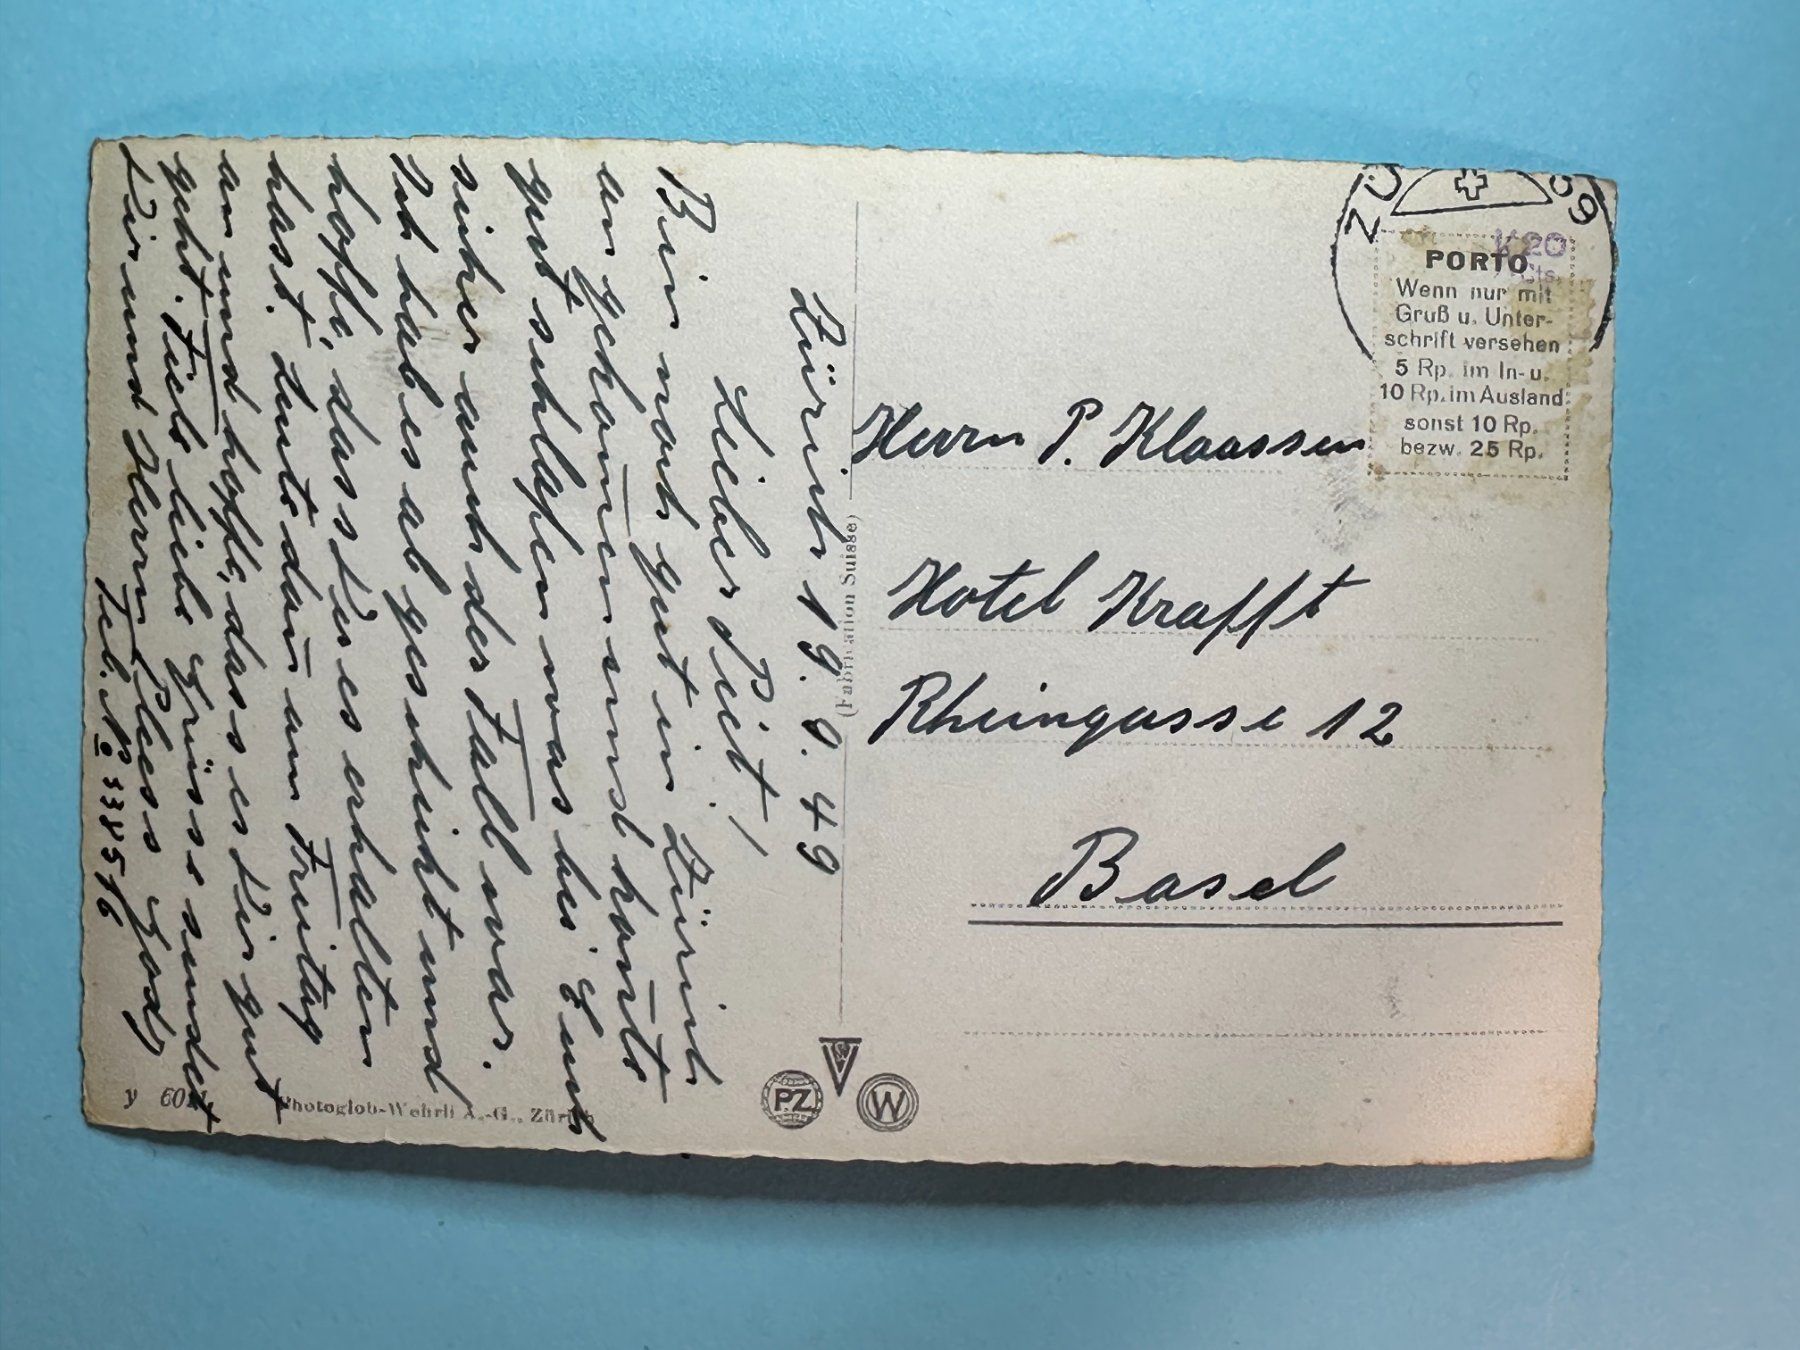 Zürich 19. 9. 49
Lieber Piet!
Bin noch gut in Zürich
an gekom̅en und kon̅te
gut schlafen was bei Euch
sicher auch der Fall war.
Ich habe es ab geschickt und
hoffe, dass Du es erhalten
hast. Leute dan̅ am Freitag
an und hoffe, dass es Dir gut
geht. Viele liebe Grüsse sendet
Dir und Herrn Pless Gody
Tel. No 338576
Herrn P. Klaassen
Hotel Krafft
Rheingasse 12
Basel
ZÜ
PORTO
Wenn nur mit
Gruß u. Unter-
schrift versehen
5 Rp. im In- u.
10 Rp. im Ausland
sonst 10 Rp.
bezw. 25 Rp.
K 20
Cts.
(Fabrication Suisse)
y 60
Photoglob-Wehrli A.-G., Zürich
PZ
SV
W